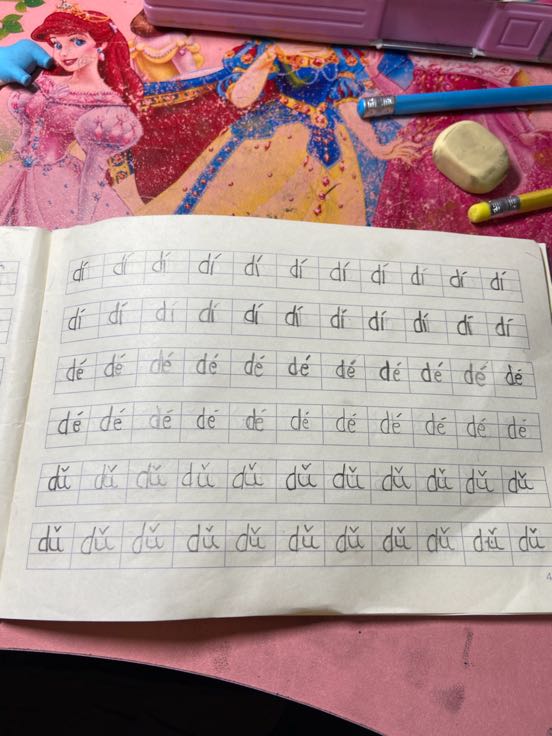 dí dí dí dí dí dí dí dí dí dí dí
dí dí dí dí dí dí dí dí dí dí dí
dé dé dé dé dé dé dé dé dé dé dé
dé dé dé dé dé dé dé dé dé dé dé
dǔ dǔ dǔ dǔ dǔ dǔ dǔ dǔ dǔ dǔ dǔ
dǔ dǔ dǔ dǔ dǔ dǔ dǔ dǔ dǔ dǔ dǔ